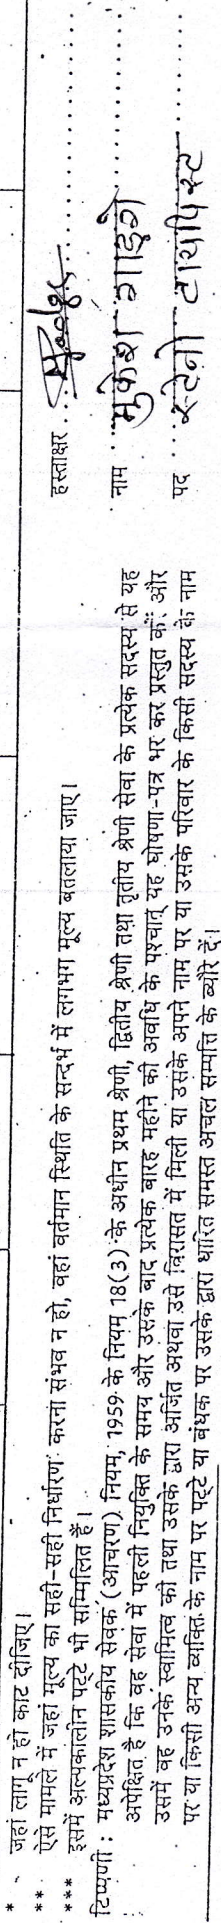 * जहां लागू न हो काट दीजिए।
** ऐसे मामले में जहां मूल्य का सही-सही निर्धारण करना संभव न हो, वहां वर्तमान स्थिति के सन्दर्भ में लगभग मूल्य बतलाया जाए।
*** इसमें अल्पकालीन पट्टे भी सम्मिलित हैं।
टिप्पणी : मध्यप्रदेश शासकीय सेवक (आचरण) नियम, 1959 के नियम 18(3) के अधीन प्रथम श्रेणी, द्वितीय श्रेणी तथा तृतीय श्रेणी सेवा के प्रत्येक सदस्य से यह
अपेक्षित है कि वह सेवा में पहली नियुक्ति के समय और उसके बाद प्रत्येक बारह महीने की अवधि के पश्चात् यह घोषणा-पत्र भर कर प्रस्तुत करें और
उसमें वह उनके स्वामित्व की तथा उसके द्वारा अर्जित अथवा उसे विरासत में मिली या उसके अपने नाम पर या उसके परिवार के किसी सदस्य के नाम
पर या किसी अन्य व्यक्ति के नाम पर पट्टे या बंधक पर उसके द्वारा धारित समस्त अचल सम्पत्ति के ब्यौरे दें।
हस्ताक्षर
नाम मुकेश गाडगे
पद स्टेनो टायपिस्ट